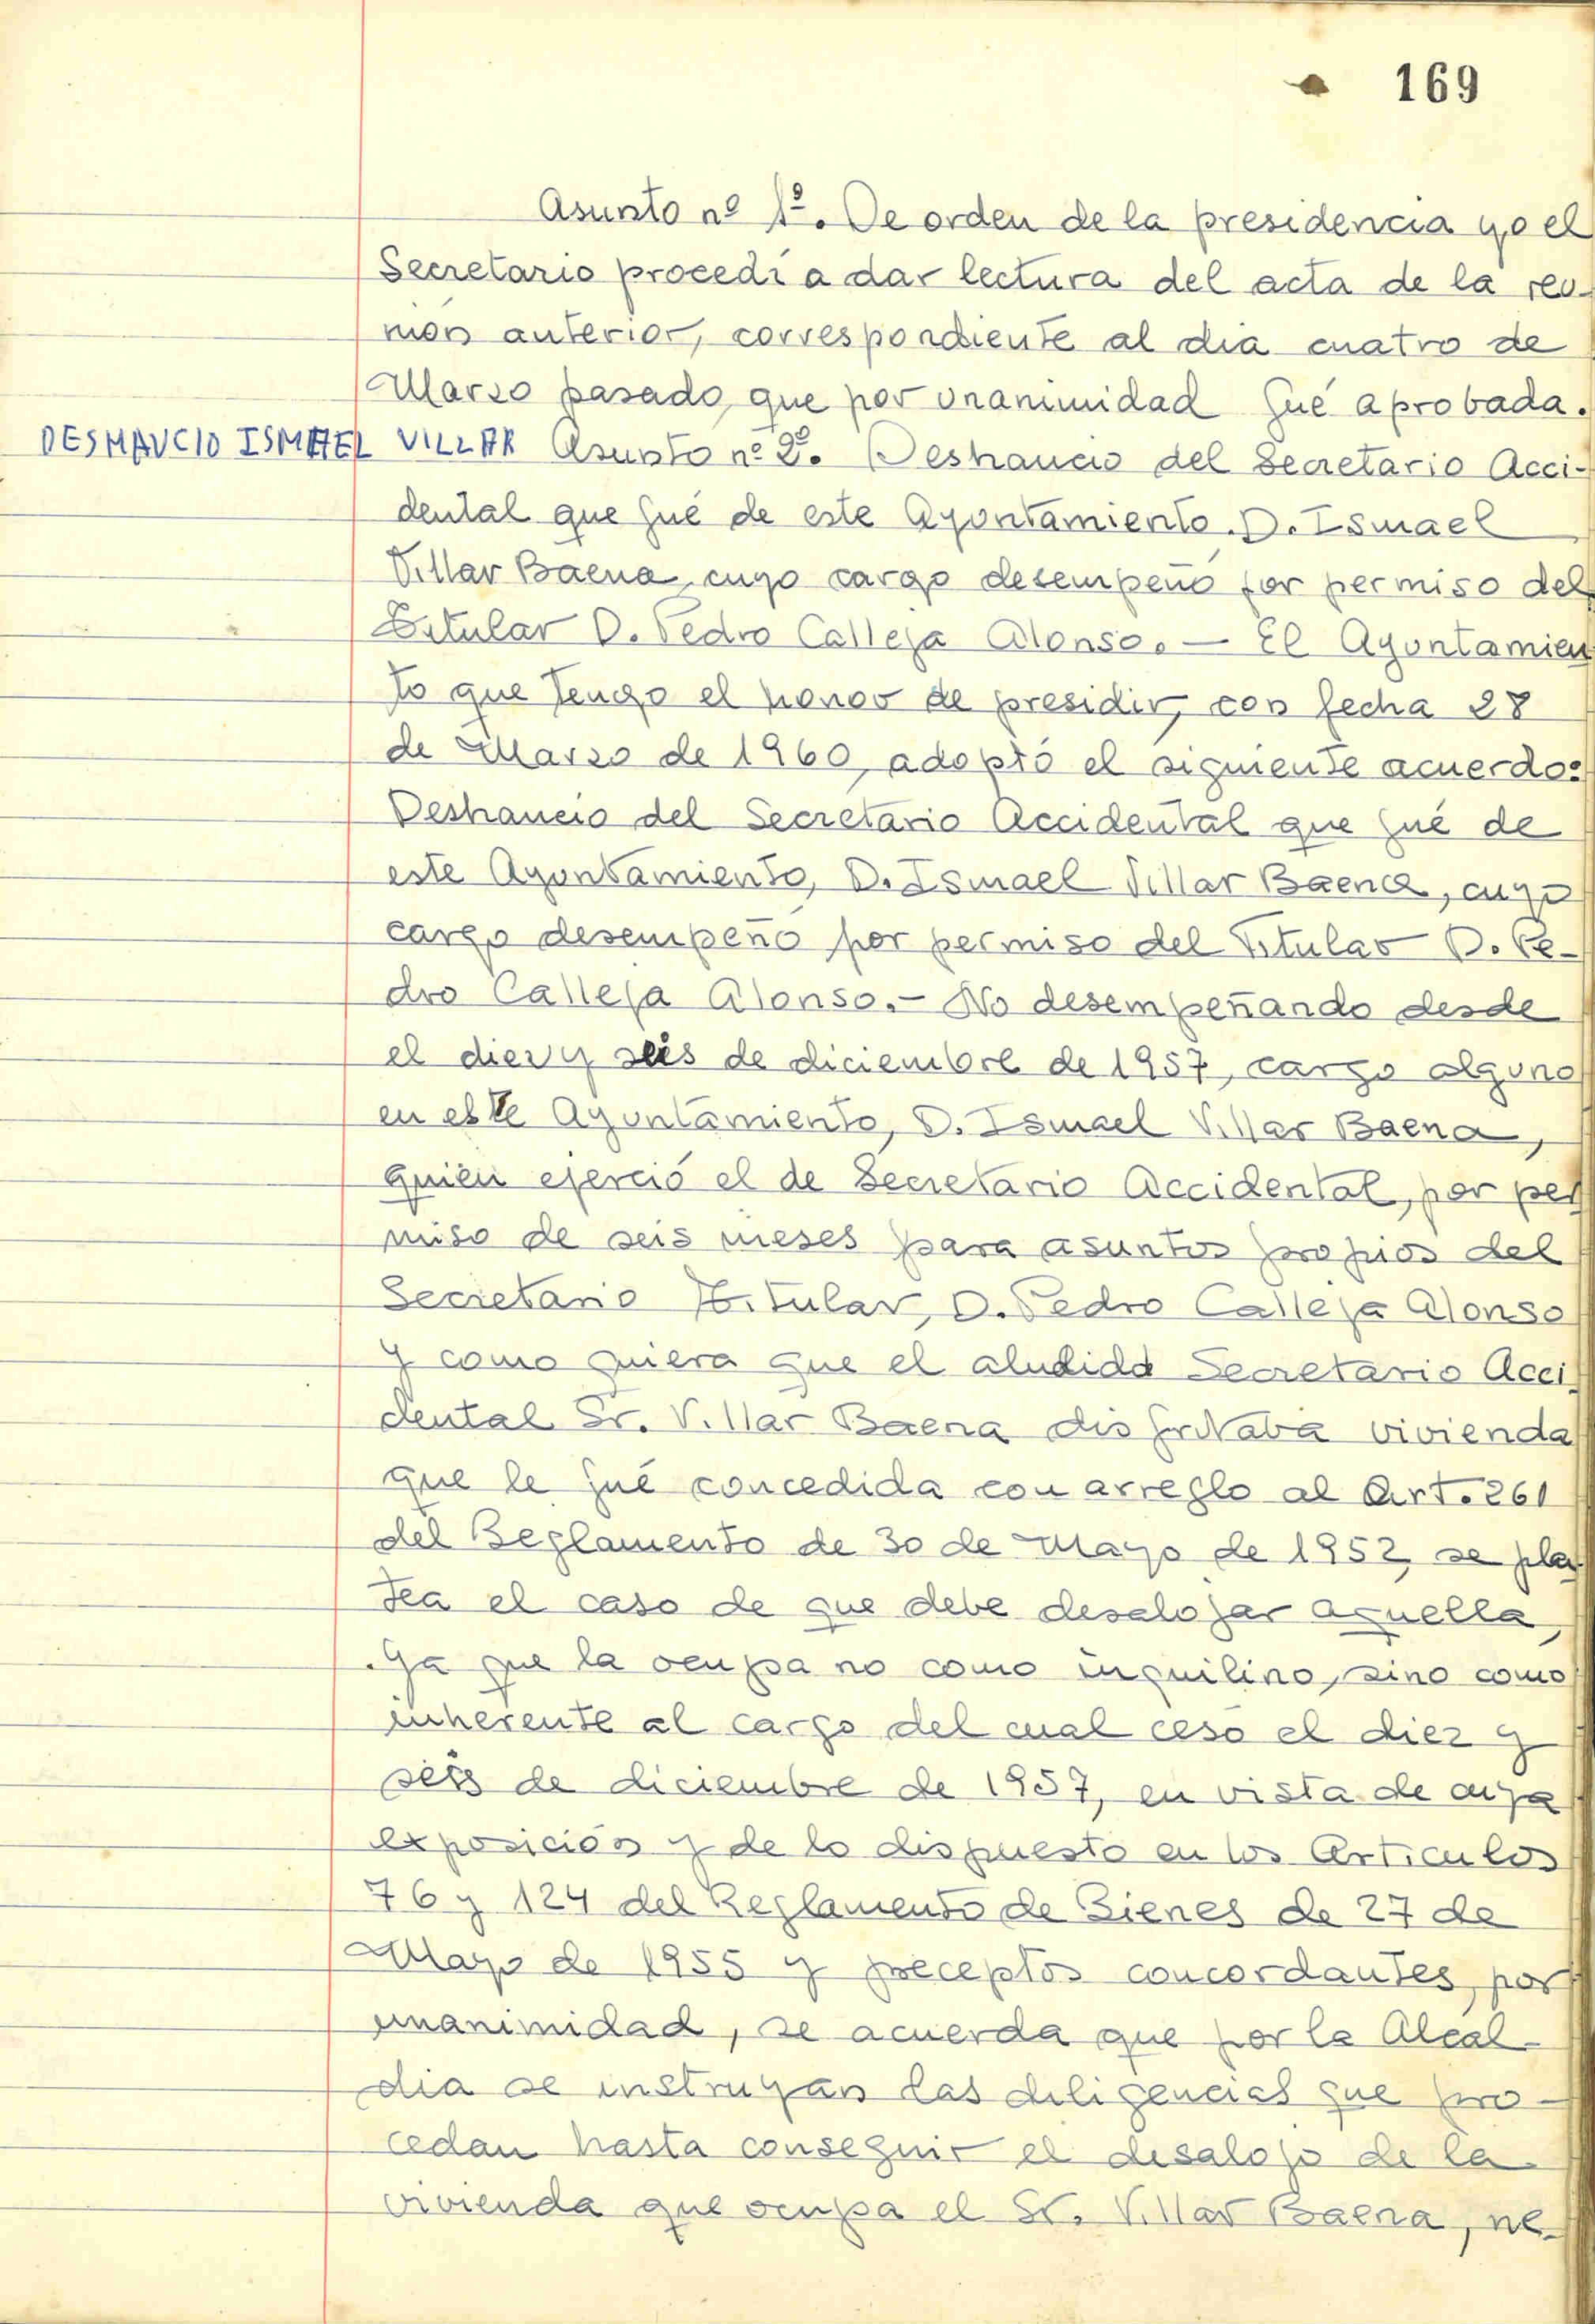 169
Asunto nº 1º. De orden de la presidencia yo el
Secretario procedí a dar lectura del acta de la reu-
nión anterior, correspondiente al dia cuatro de
Marzo pasado, que por unanimidad fué aprobada.
DESHAUCIO ISMAEL VILLAR Asunto nº 2º. Deshaucio del Secretario Acci-
dental que fué de este Ayuntamiento D. Ismael
Villar Baena, cuyo cargo desempeñó por permiso del
Titular D. Pedro Calleja Alonso. — El Ayuntamien
to que tengo el honor de presidir, con fecha 28
de Marzo de 1960, adoptó el siguiente acuerdo:
Deshaucio del Secretario Accidental que fué de
este Ayuntamiento, D. Ismael Villar Baena, cuyo
cargo desempeñó por permiso del Titular D. Pe-
dro Calleja Alonso.- No desempeñando desde
el diez y seis de diciembre de 1957, cargo alguno
en este Ayuntamiento, D. Ismael Villar Baena,
quien ejerció el de Secretario Accidental, por per
miso de seis meses para asuntos propios del
Secretario Titular, D. Pedro Calleja Alonso
y como quiera que el aludido Secretario Acci
dental Sr. Villar Baena disfrutaba vivienda
que le fué concedida con arreglo al Art. 261
del Reglamento de 30 de Mayo de 1952, se plan
tea el caso de que debe desalojar aquella,
ya que la ocupa no como inquilino, sino como
inherente al cargo del cual cesó el diez y
seis de diciembre de 1957, en vista de cuya
exposición y de lo dispuesto en los Articulos
76 y 124 del Reglamento de Bienes de 27 de
Mayo de 1955 y preceptos concordantes, por
unanimidad, se acuerda que por la Alcal-
dia se instruyan las diligencias que pro-
cedan hasta conseguir el desalojo de la
vivienda que ocupa el Sr. Villar Baena, ne-